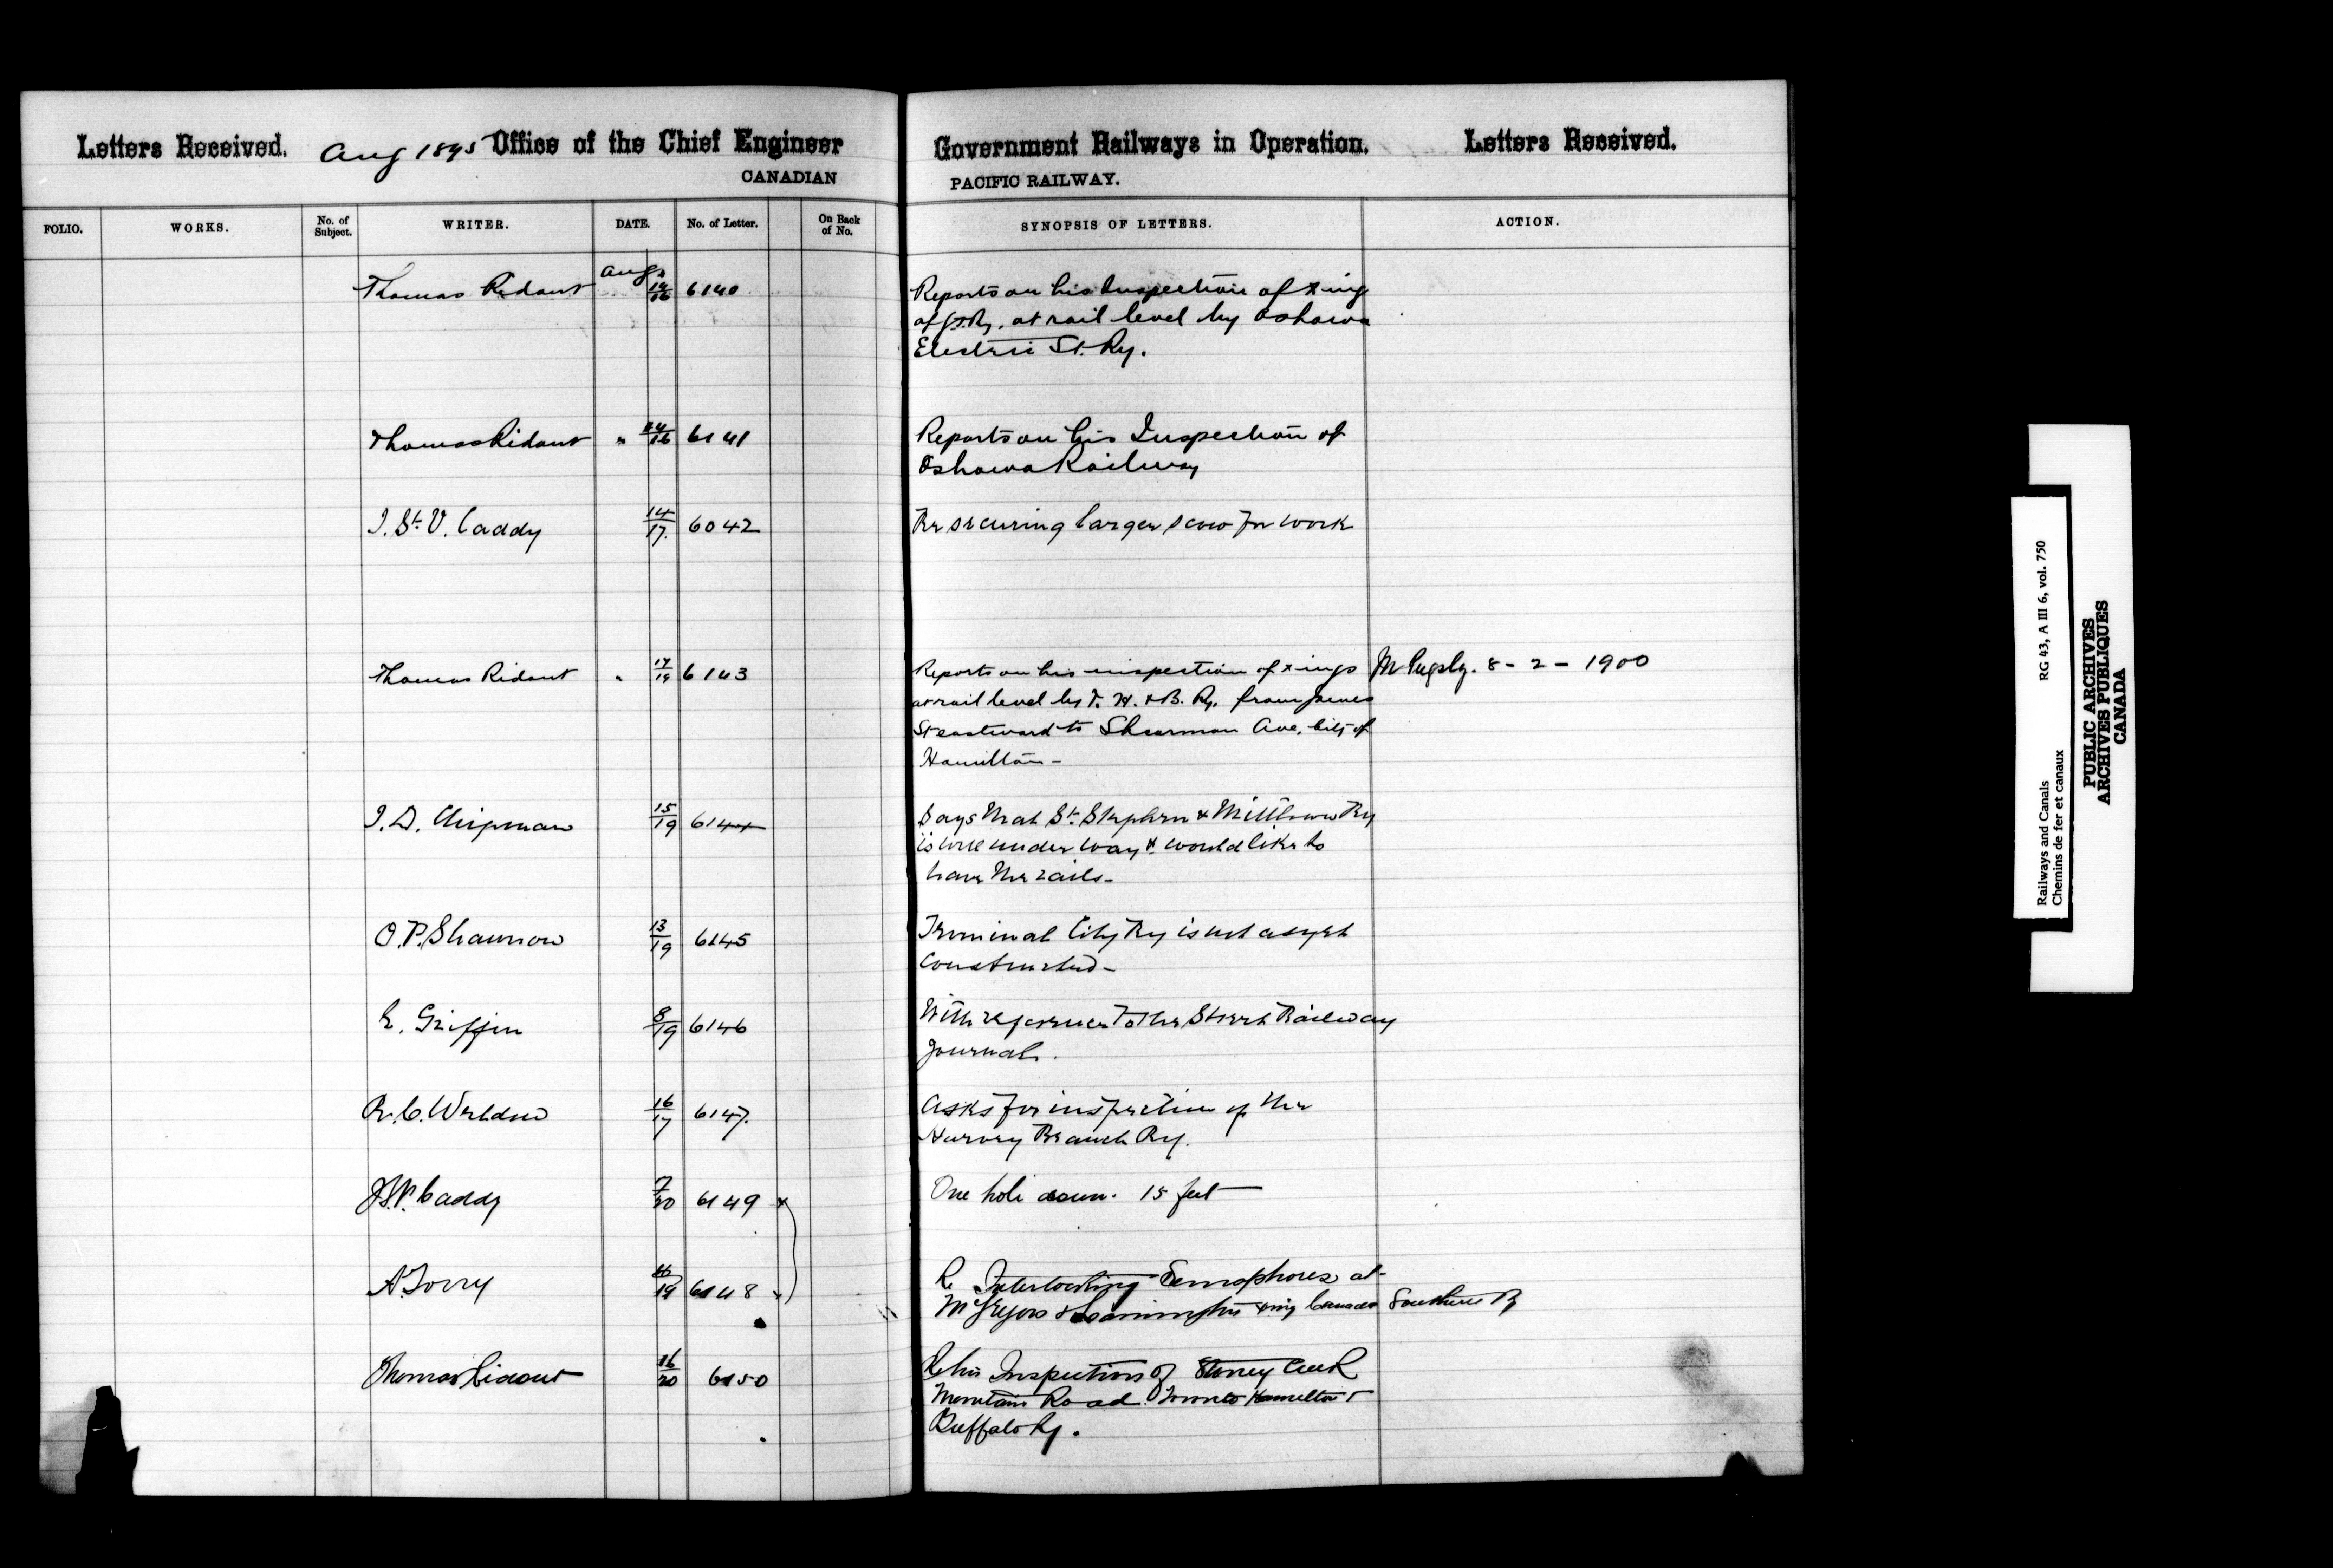 Letters Received. Aug 1895 Office of the Chief Engineer Government Railways in Operation. Letters Received.
CANADIAN PACIFIC RAILWAY.
FOLIO. WORKS. No. of Subject. WRITER. DATE. No. of Letter. On Back of No. SYNOPSIS OF LETTERS. ACTION.
Thomas Ridout Aug 14/16 6140 Reports on his Inspection of xing
of G.T.Ry. at rail level by Oshawa
Electric St. Ry.
Thomas Ridout " 14/16 6141 Reports on his Inspection of
Oshawa Railway
J. St. V. Caddy 14/17. 6042 Re securing larger scow for work
Thomas Ridout " 17/19 6143 Reports on his inspection of xings M Pugsly. 8 - 2 - 1900
at rail level by T. H. & B. Ry. from James
St eastward to Shearman Ave, City of
Hamilton -
J. D. Chipman 15/19 6144 Says that St. Stephen & Milltown Ry
is well under way & would like to
have the rails -
O. P. Shannon 13/19 6145 Terminal City Ry is not as yet
Constructed -
E. Griffin 8/19 6146 With reference to the Street Railway
Journal.
R. C. Weldon 16/17 6147. Asks for inspection of the
Harvey Branch Ry.
J.S.V. Caddy 7/20 6149 x One hole down. 15 feet
A. Torry 16/19 6148 x Re Interlocking Semaphores at
McGregors & Leamington xing Canada Southern Ry
Thomas Ridout 16/20 6150 Re his Inspection of Stoney Creek
Mountain Road. Toronto Hamilton &
Buffalo Ry.
Railways and Canals RG 43, A III 6, vol. 750
Chemins de fer et canaux
PUBLIC ARCHIVES
ARCHIVES PUBLIQUES
CANADA